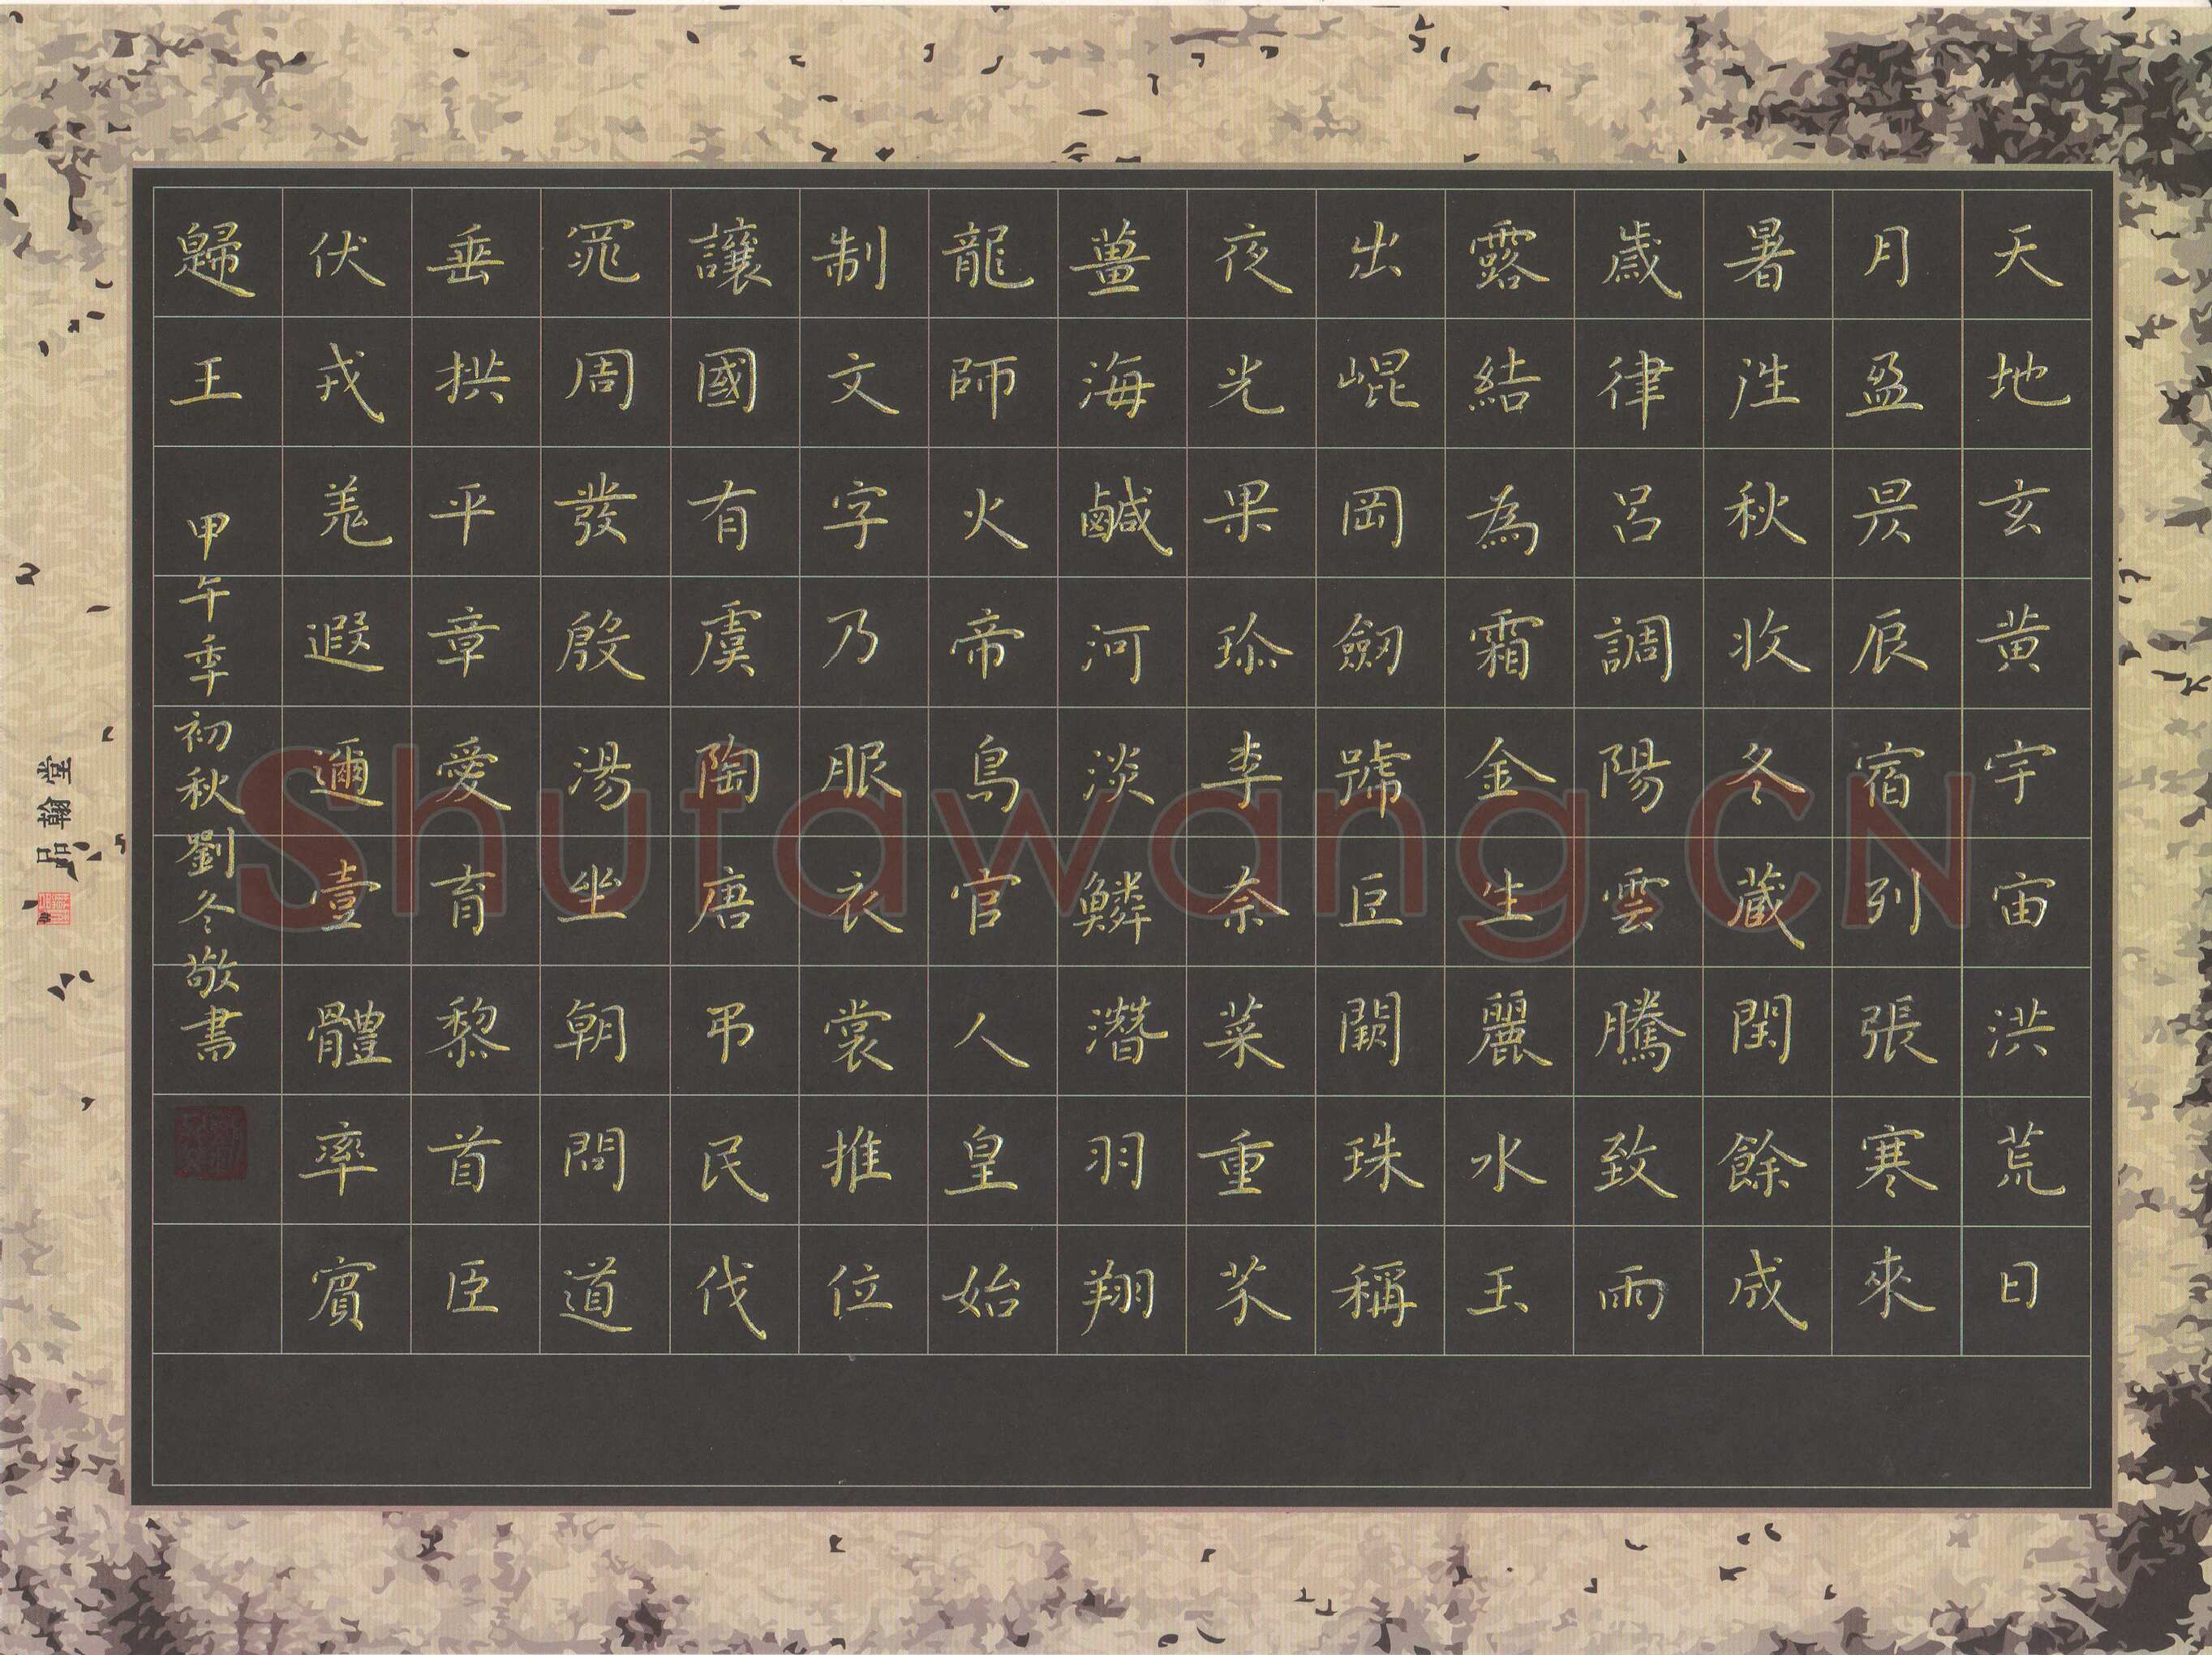 天地玄黄宇宙洪荒日
月盈昃辰宿列張寒來
暑往秋收冬蔵閏餘成
歲律呂調陽雲騰致雨
露結為霜金生麗水玉
出崐岡劒號巨闕珠稱
夜光果珎李柰菜重芥
薑海鹹河淡鱗潛羽翔
龍師火帝鳥官人皇始
制文字乃服衣裳推位
讓國有虞陶唐弔民伐
罪周發殷湯坐朝問道
垂拱平章愛育黎首臣
伏戎羌遐邇壹體率賓
歸王
甲午季初秋劉冬敬書
品翰堂
Shufawang.CN